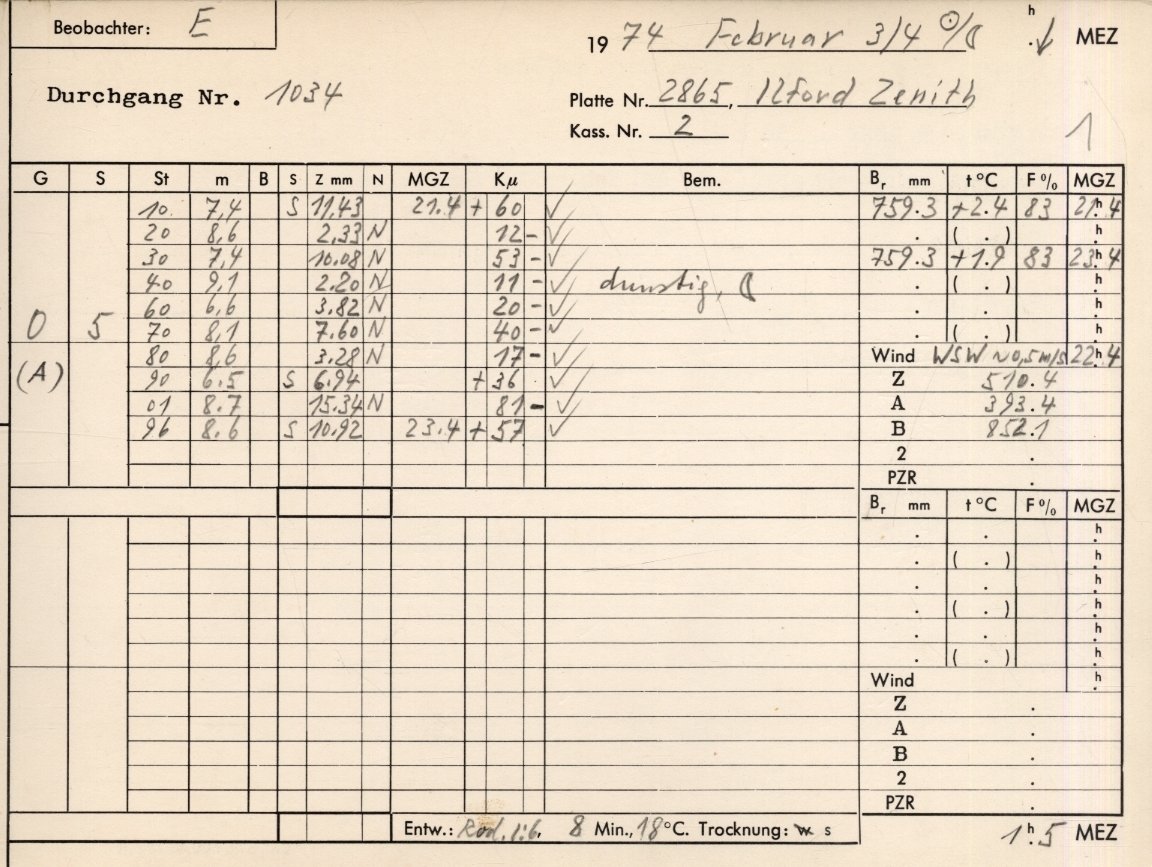 Beobachter: E
19 74 Februar 3/4 ☉/☾ h . ↓ MEZ
Durchgang Nr. 1034
Platte Nr. 2865, Ilford Zenith
Kass. Nr. 2
1
G S St m B S Z mm N MGZ Kμ Bem. Br mm t °C F % MGZ
10 7,4 S 11,43 21.4 + 60 ✓ 759.3 +2.4 83 21h.4
20 8,6 2,33 N 12 - ✓ . ( . ) h.
30 7,4 10.08 N 53 - ✓ 759.3 +1.9 83 23h.4
40 9,1 2.20 N 11 - ✓ dunstig, ☾ . ( . ) h.
60 6,6 3.82 N 20 - ✓ . . h.
0 5 70 8,1 7.60 N 40 - ✓ . ( . ) h.
80 8,6 3.28 N 17 - ✓ Wind WSW ~0,5 m/s 22h.4
(A) 90 6.5 S 6.94 + 36 ✓ Z 510.4
01 8.7 15.34 N 81 - ✓ A 393.4
96 8.6 S 10.92 23.4 + 57 ✓ B 852.1
2 .
PZR .
Br mm t °C F % MGZ
. . h.
. ( . ) h.
. . h.
. ( . ) h.
. . h.
. ( . ) h.
Wind h.
Z .
A .
B .
2 .
PZR .
Entw.: Rod. 1:6, 8 Min., 18 °C. Trocknung: w s
1h.5 MEZ